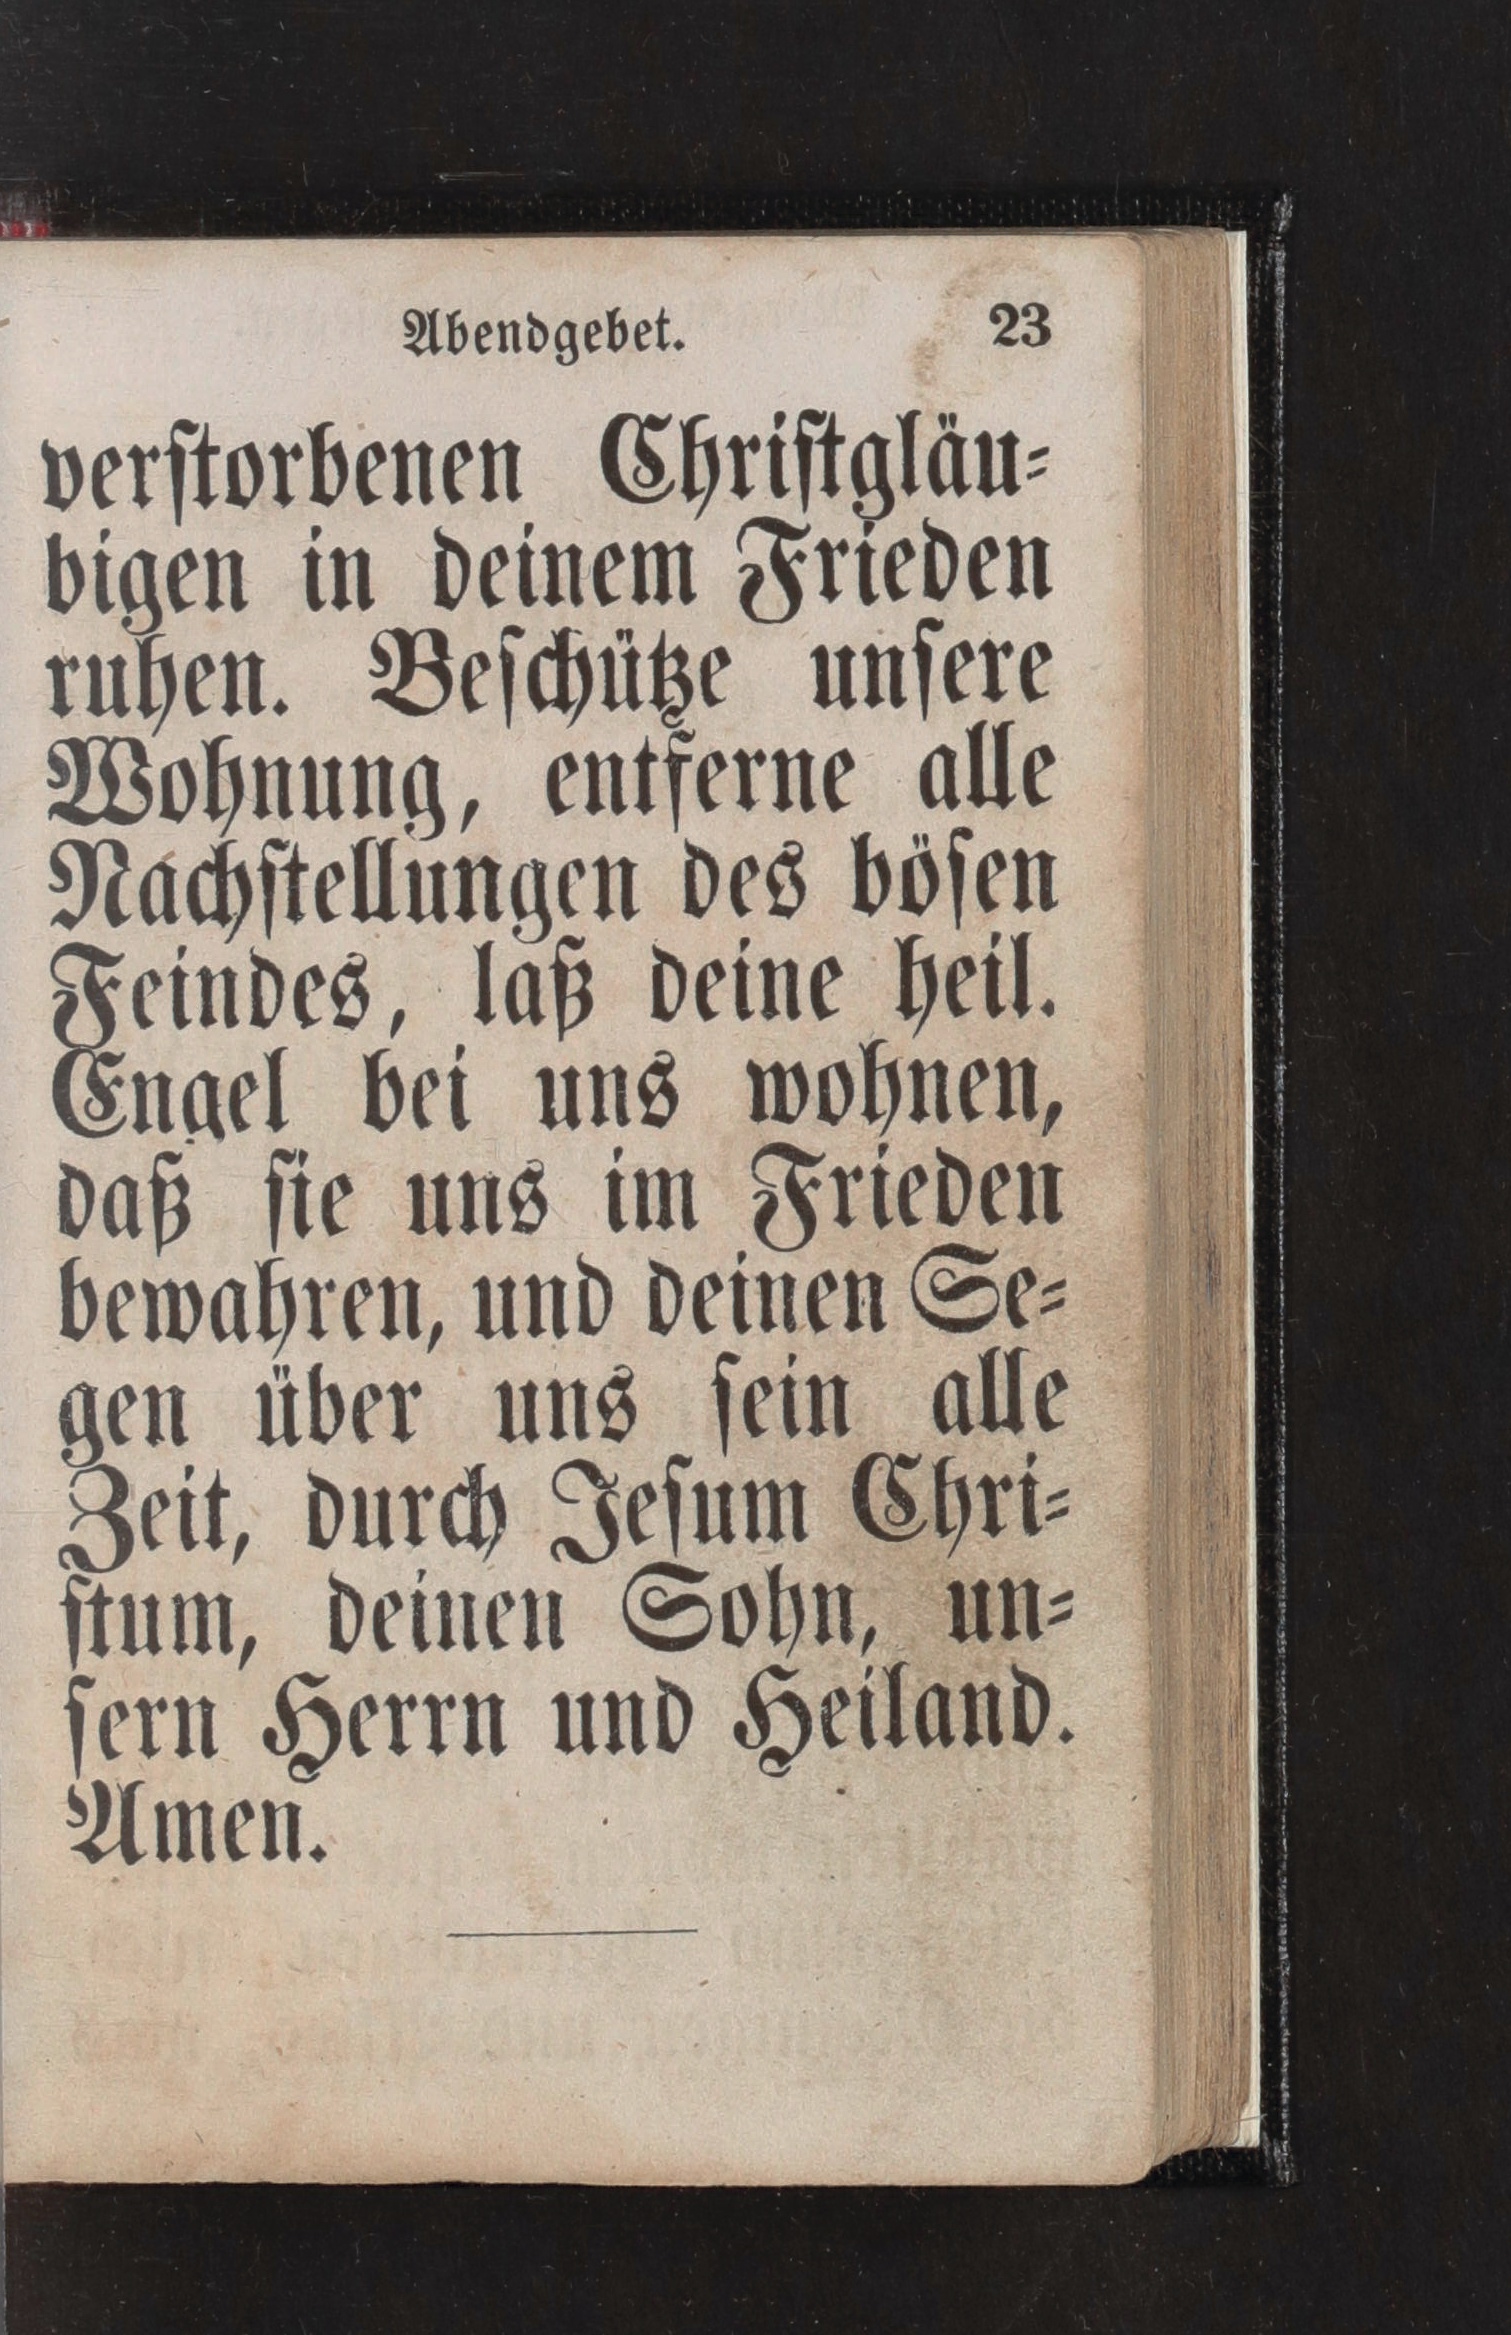 Abendgebet. 23
verſtorbenen Chriſtgläu-
bigen in deinem Frieden
ruhen. Beſchütze unſere
Wohnung, entferne alle
Nachſtellungen des böſen
Feindes, laß deine heil.
Engel bei uns wohnen,
daß ſie uns im Frieden
bewahren, und deinen Se-
gen über uns ſein alle
Zeit, durch Jeſum Chri-
ſtum, deinen Sohn, un-
ſern Herrn und Heiland.
Amen.